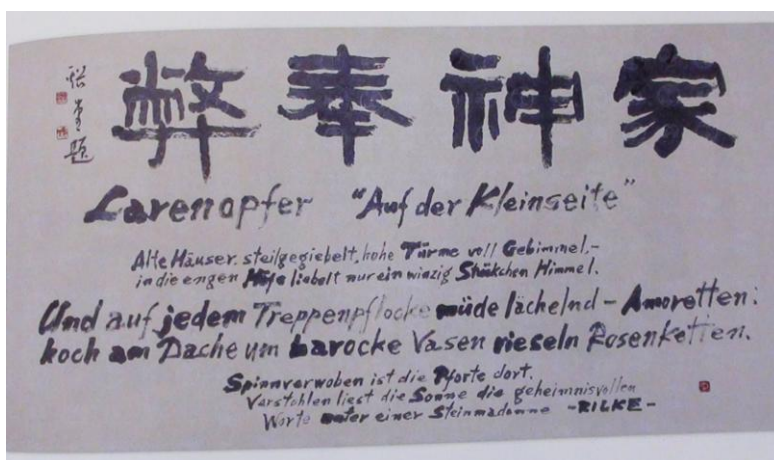 家神奉弊
題
Larenopfer "Auf der Kleinseite"
Alte Häuser, steilgegiebelt, hohe Türme voll Gebimmel,-
in die engen Höfe liebelt nur ein winzig Stückchen Himmel.
Und auf jedem Treppenpflocke müde lächelnd - Amoretten:
hoch am Dache um barocke Vasen rieseln Rosenketten.
Spinnverwoben ist die Pforte dort.
Verstohlen liest die Sonne die geheimnisvollen
Worte unter einer Steinmadonne -RILKE-